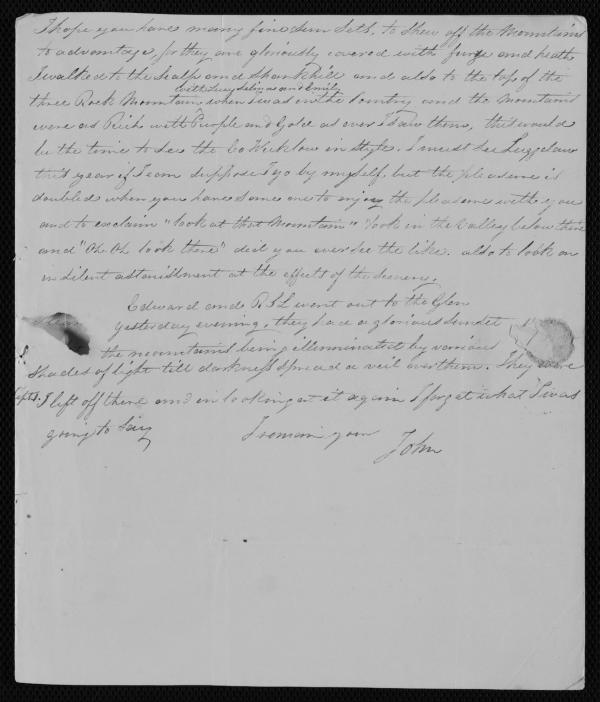 I hope you have many fine Sun Sets, to Shew off the Mountains
to advantage, for they are gloriously covered with furze and heath
I walked to the Scalp and Shankhill and also to the top of the
with Lucy Selina and Emily
three Rock Mountain, when I was in the Country and the Mountains
were as Rich with Purple and Gold as ever I saw them, this would
be the time to see the Co Wicklow in Style. I must see Luggelaw
this year if I can suppose I go by myself, but the pleasure is
doubled when you have some one to enjoy the pleasure with you
and to exclaim "look at that Mountain" "look in the Valley below there
and "Oh Oh look there" did you ever see the like. also to look on
in silent astonishment at the effect of the Scenery.
Edward and R S L went out to the Glen
yesterday evening, they had a glorious Sunset
the mountains being illuminated by various
Shades of light till darkness spread a veil over them. They were
I left off there and in looking at it again I forget what I was
going to Say I remain your
John